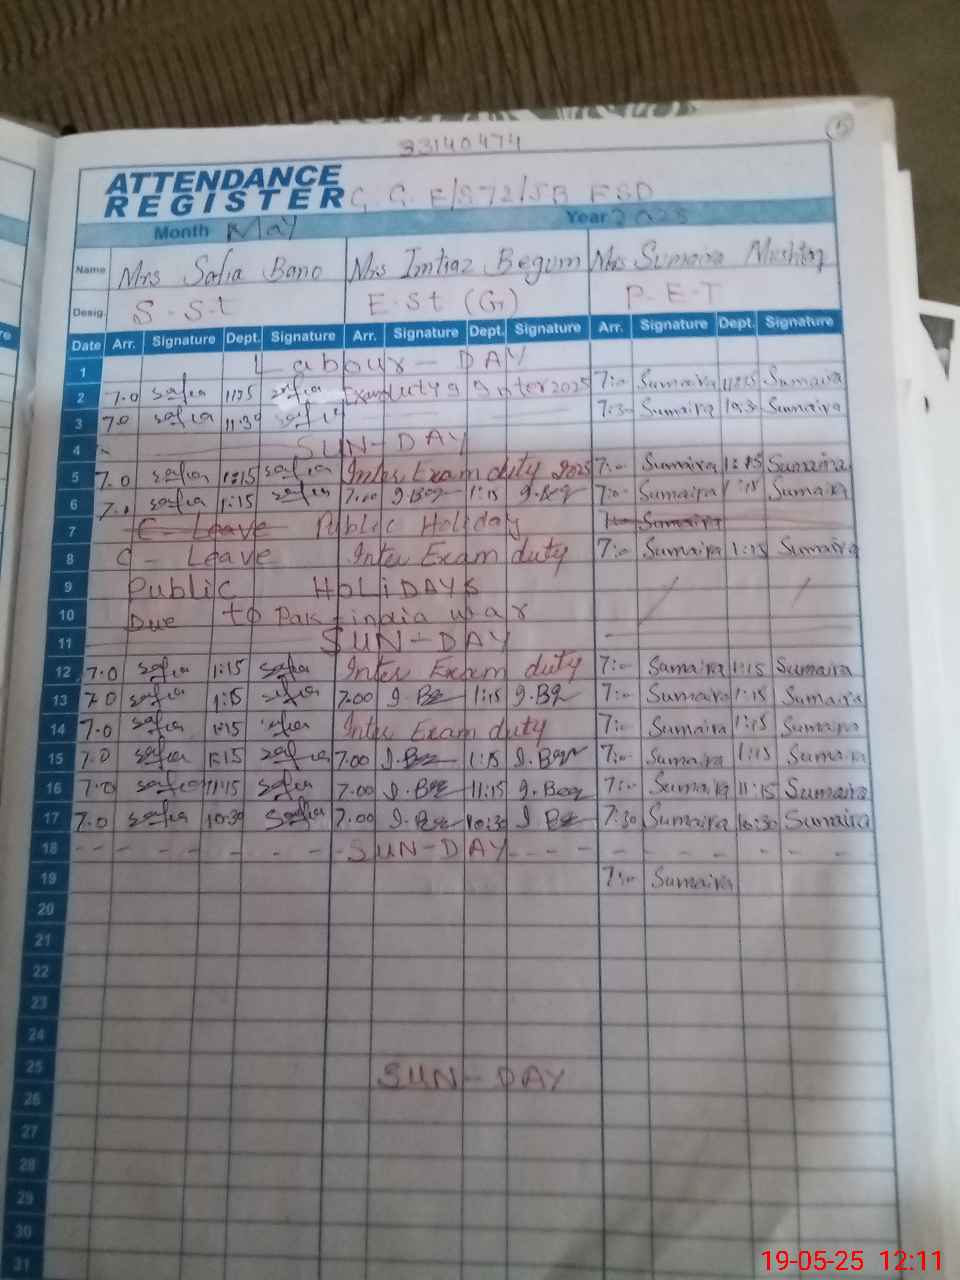 33140474
5
ATTENDANCE
REGISTER G. G. E/S 72/JB FSD
Month May Year 2025
Name Mrs Safia Bano Mrs Imtiaz Begum Mrs Sumaira Mushtaq
Desig. S-S-t E-St (G) P-E-T
Date Arr. Signature Dept. Signature Arr. Signature Dept. Signature Arr. Signature Dept. Signature
1 Labour-DAY
2 7.0 safia 1:15 safia Exam duty 9 Inter 2025 7:00 Sumaira 11:15 Sumaira
3 7.0 safia 11:30 safia 7:30 Sumaira 10:30 Sumaira
4 SUN-DAY
5 7.0 safia 1:15 safia Inter Exam duty 2025 7:00 Sumaira 1:15 Sumaira
6 7.0 safia 1:15 safia 7.00 I.Beg 1:15 I.Beg 7:00 Sumaira 1:15 Sumaira
7 C-Leave Public Holiday Sumaira
8 C-Leave Inter Exam duty 7:00 Sumaira 1:15 Sumaira
9 Public HOLIDAYS
10 Due to Pak-india war
11 SUN-DAY
12 7.0 safia 1:15 safia Inter Exam duty 7:00 Sumaira 1:15 Sumaira
13 7.0 safia 1:15 safia 7.00 I.Beg 1:15 I.Beg 7:00 Sumaira 1:15 Sumaira
14 7.0 safia 1:15 safia Inter Exam duty 7:00 Sumaira 1:15 Sumaira
15 7.0 safia 1:15 safia 7.00 I.Beg 1:15 I.Beg 7:00 Sumaira 1:15 Sumaira
16 7.0 safia 11:15 safia 7.00 I.Beg 11:15 I.Beg 7:00 Sumaira 11:15 Sumaira
17 7.0 safia 10:30 safia 7.00 I.Beg 10:30 I.Beg 7:30 Sumaira 10:30 Sumaira
18 SUN-DAY
19 7:00 Sumaira
20
21
22
23
24
25 SUN-DAY
26
27
28
29
30
31
19-05-25 12:11